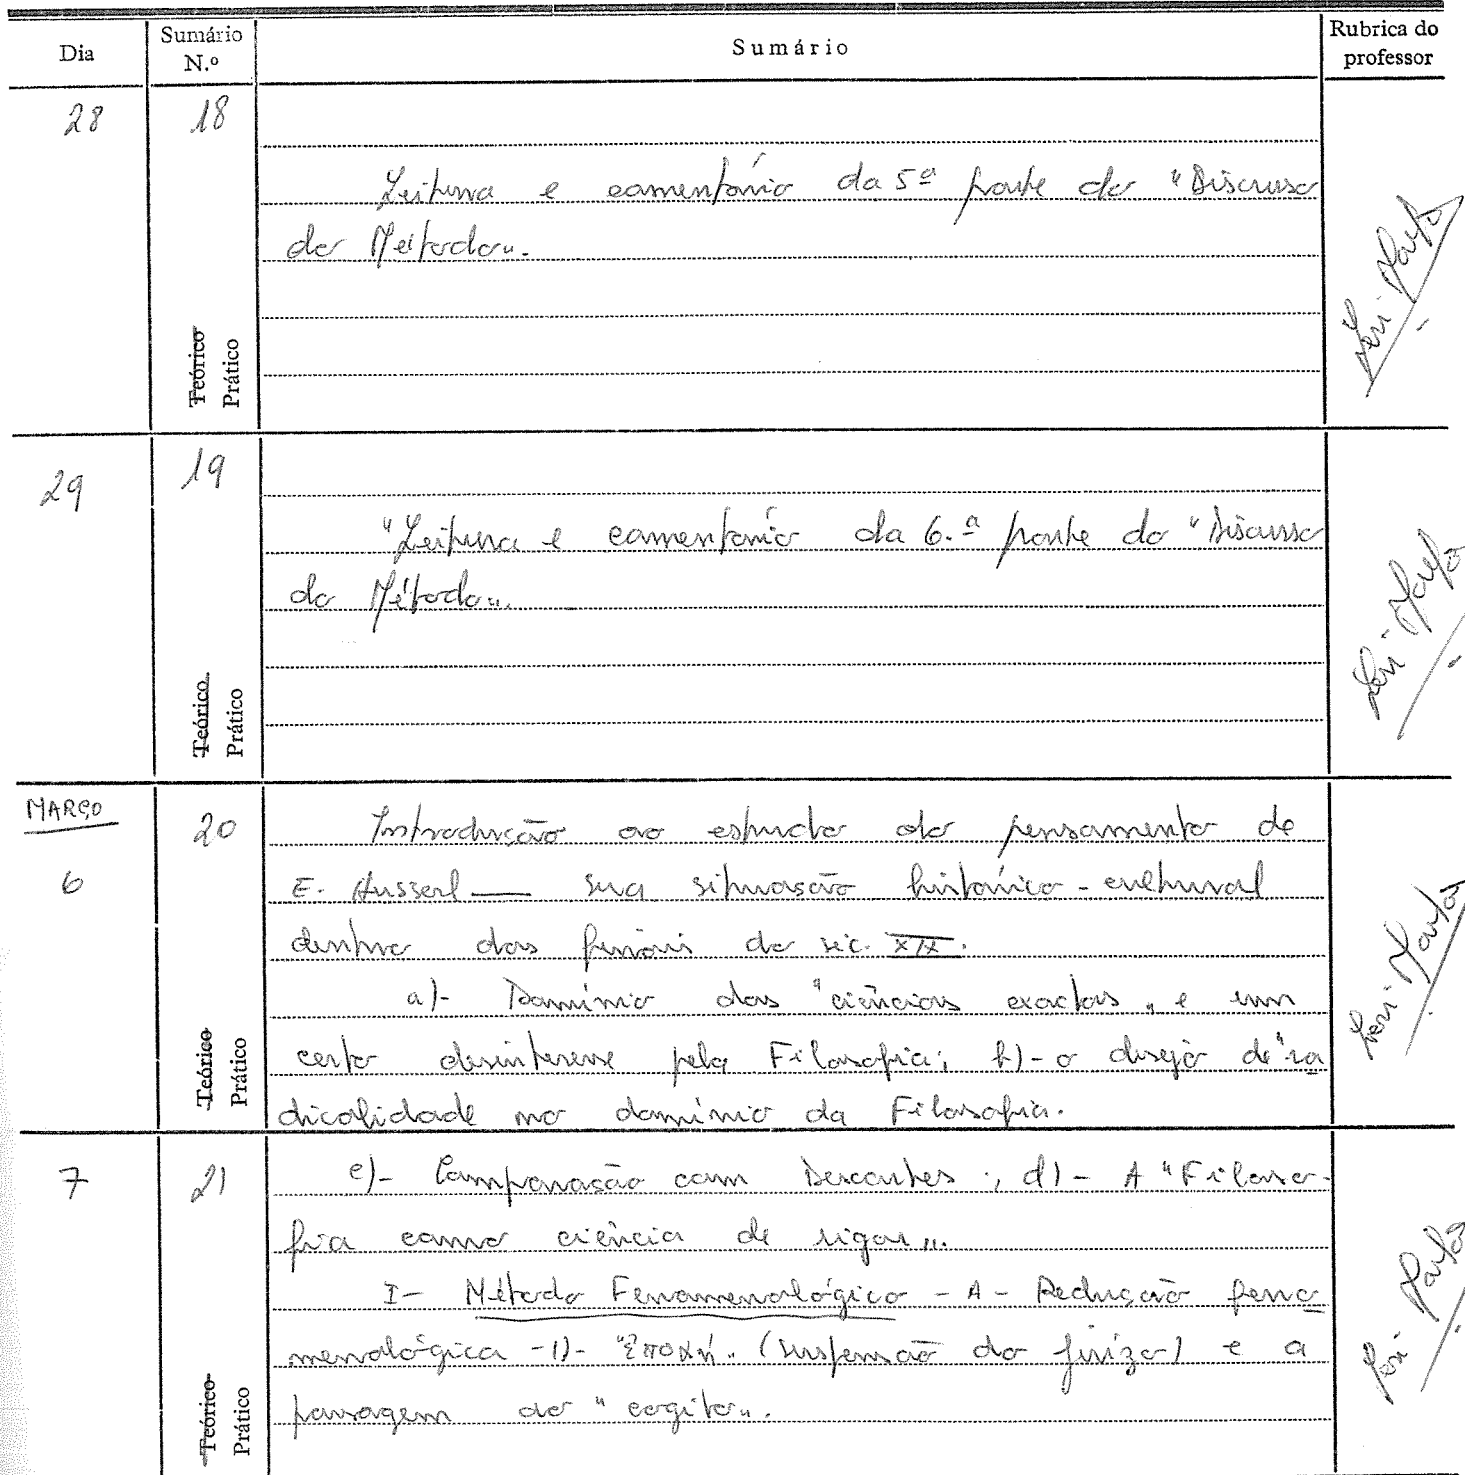 Dia Sumário N.º Sumário Rubrica do professor
28 18
Leitura e comentário da 5ª parte do "Discurso
do Método".
Teórico
Prático
29 19
"Leitura e comentário da 6.ª parte do "Discurso
do Método".
Teórico
Prático
MARÇO
6 20 Introdução ao estudo do pensamento de
E. Husserl — sua situação histórico-cultural
dentro dos finais do séc. XIX.
a)- Domínio das "ciências exactas" e um
certo desinteresse pela Filosofia; b)- o desejo de "ra
dicalidade no domínio da Filosofia.
Teórico
Prático
7 21 c)- Comparação com Descartes; d)- A "Filoso-
fia como ciência de rigor".
I- Método Fenomenológico - A - Redução feno
menológica -1)- "Εποχή" (suspensão do juízo) e a
passagem ao "cogito".
Teórico
Prático